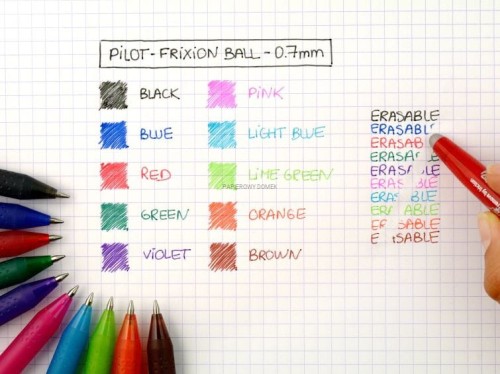 PILOT-FRIXION BALL - 0.7mm
BLACK
BLUE
RED
GREEN
VIOLET
PINK
LIGHT BLUE
LIME GREEN
ORANGE
BROWN
ERASABLE
ERASABLE
ERASAB
ERASABLE
ERAS BLE
ERA BLE
ERA BLE
ER ABLE
ER SABLE
E ISABLE
PAPIEROWY DOMEK